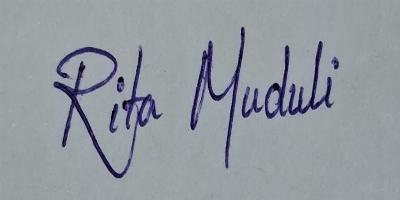 Rita Muduli